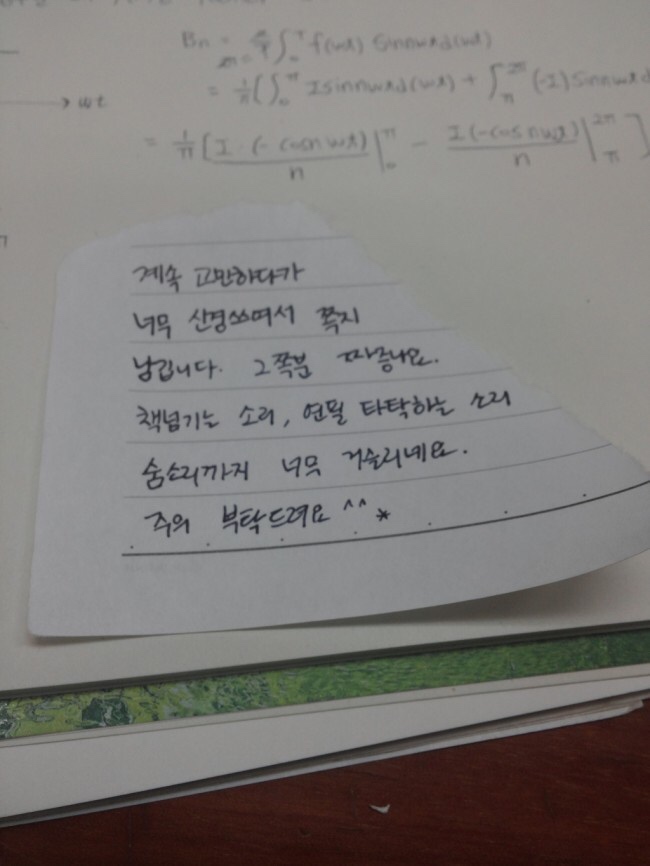 Bn = ∫ f(wt) sinnwtd(wt)
→ wt
= 1/π (∫₀^π Isinnwtd(wt) + ∫_π^2π (-I) Sinnwtd
= 1/π [I·(-cosnwt)/n |₀^π - I(-cosnwt)/n |_π^2π ]
계속 고민하다가
너무 신경쓰여서 쪽지
남깁니다. 그쪽분 짜증나요.
책넘기는 소리, 연필 타탁하는 소리
숨소리까지 너무 거슬리네요.
주의 부탁드려요 ^^*